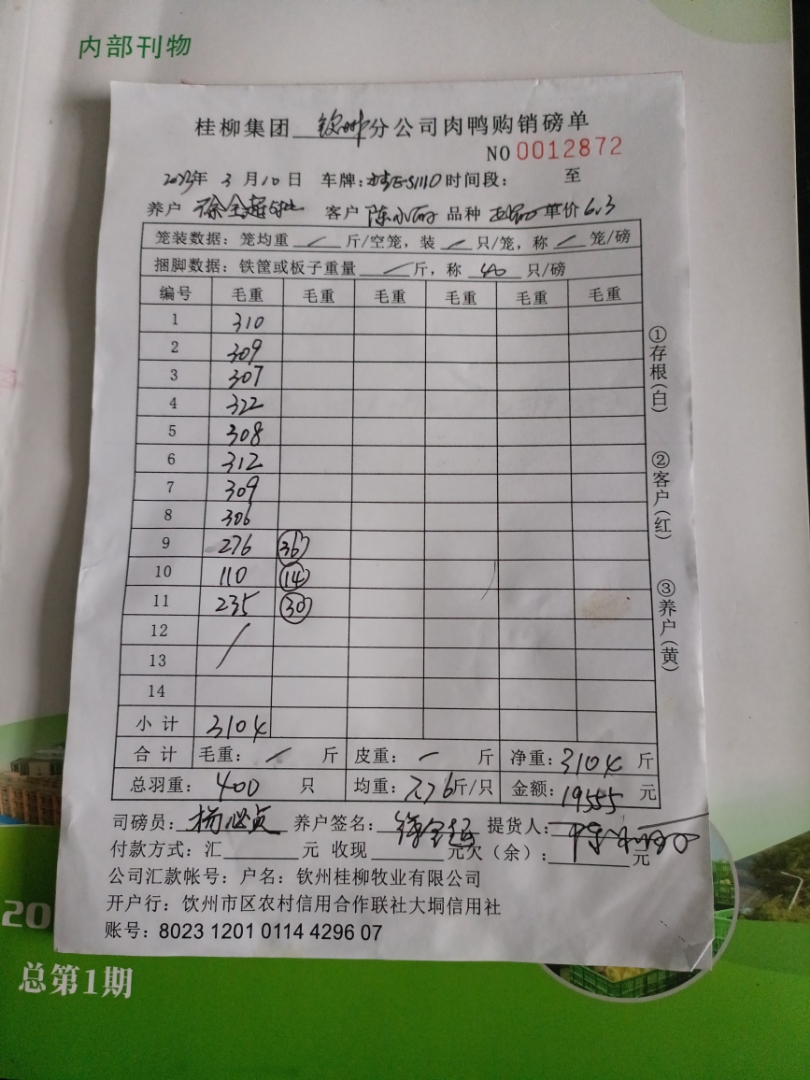 内部刊物
桂柳集团 钦州 分公司肉鸭购销磅单
NO 0012872
2023年 3 月 10 日 车牌: E·S1110 时间段: 至
养户 徐全超 客户 陈小 品种 单价 6.3
笼装数据: 笼均重 / 斤/空笼, 装 / 只/笼, 称 / 笼/磅
捆脚数据: 铁筐或板子重量 / 斤, 称 40 只/磅
编号 毛重 毛重 毛重 毛重 毛重 毛重
1 310
2 309
3 307
4 322
5 308
6 312
7 309
8 306
9 276 36
10 110 14
11 235 30
12 /
13
14
小计 3104
合计 毛重: / 斤 皮重: - 斤 净重: 3104 斤
总羽重: 400 只 均重: 7.76 斤/只 金额: 19555 元
①存根(白)
②客户(红)
③养户(黄)
司磅员: 杨 贞 养户签名: 徐全超 提货人:
付款方式: 汇 元 收现 元欠(余): 元
公司汇款帐号: 户名: 钦州桂柳牧业有限公司
开户行: 饮州市区农村信用合作联社大垌信用社
账号: 8023 1201 0114 4296 07
20
总第1期